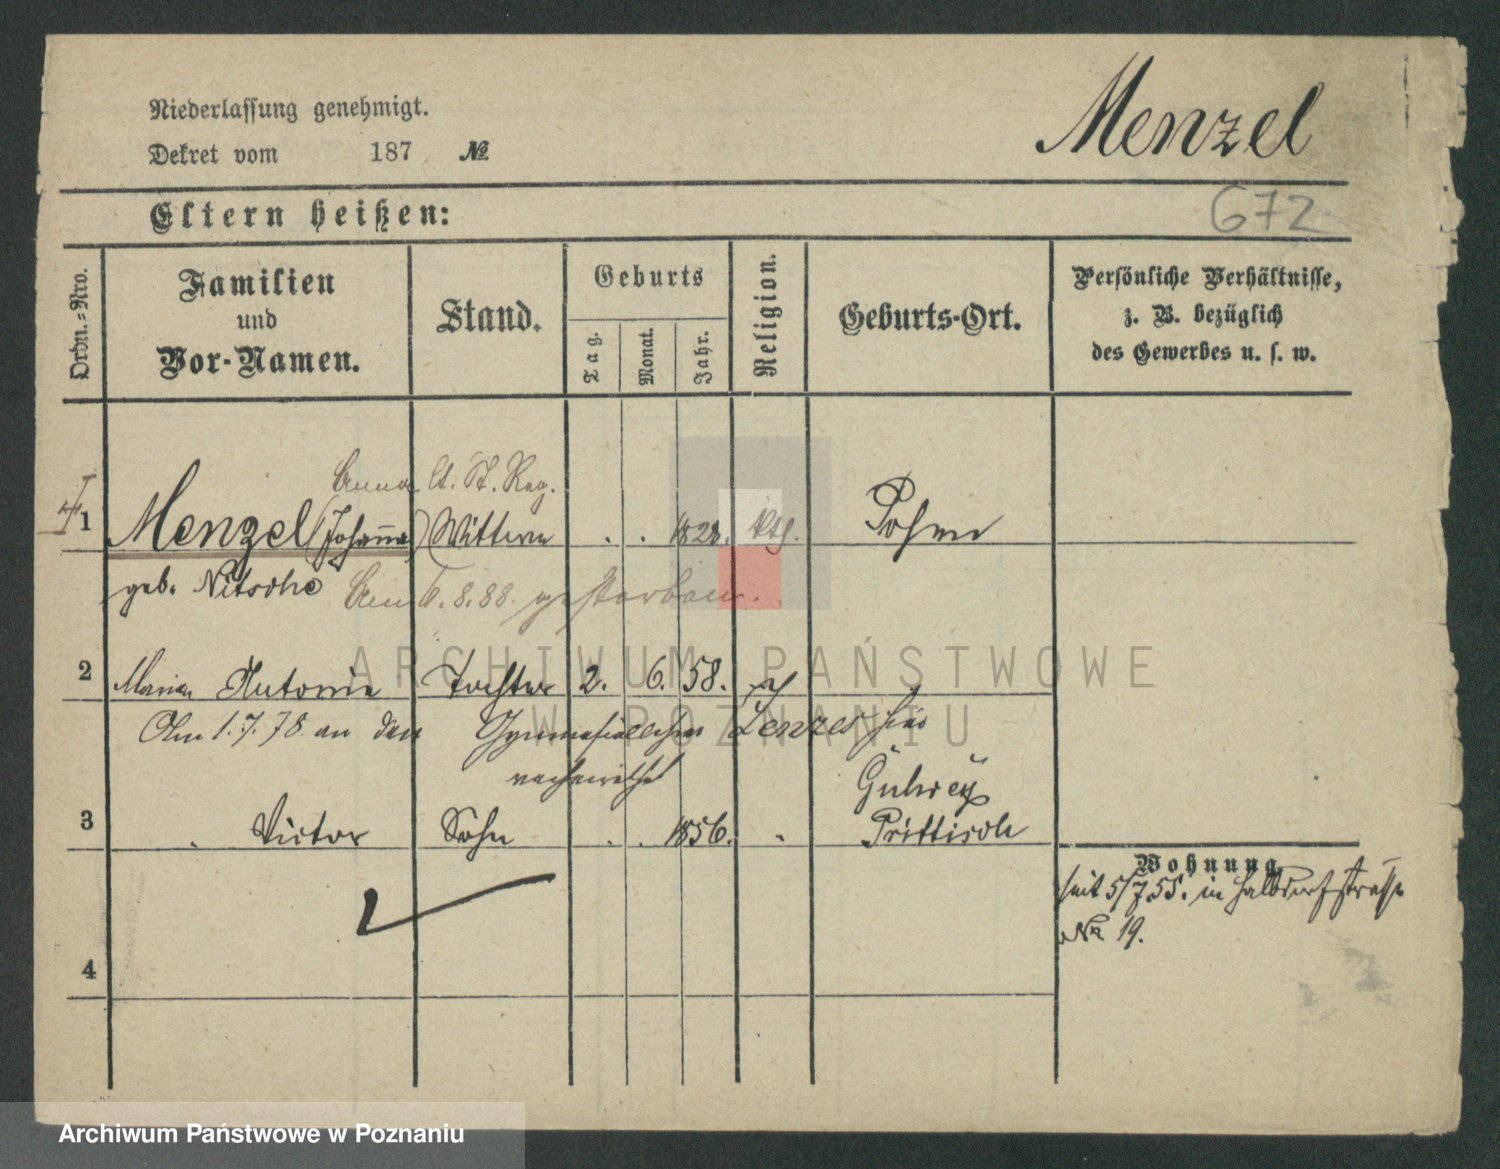 Niederlassung genehmigt.
Menzel
Dekret vom 187 №
672
Eltern heißen:
Ordn.-Nro.
Familien
und
Vor-Namen.
Stand.
Geburts
Tag.
Monat.
Jahr.
Religion.
Geburts-Ort.
Persönliche Verhältnisse,
z. B. bezüglich
des Gewerbes u. s. w.
Anna lt. St. Reg.
1 Menzel (Johanna) Wittwe . . 1828. kth. Posen
geb. Nitsche Am 6.8.88. gestorben.
2 Maria Antonie Tochter 2. 6. 58.
Am 1.7.78 an den Gymnasiallehrer hier
verheirathet
3 Victor Sohn . . 1856. "
Prittisch
Wohnung
seit 5/7 55. in Halbdorfstrasse
No 19.
4
ARCHIWUM PAŃSTWOWE
W POZNANIU
Archiwum Państwowe w Poznaniu